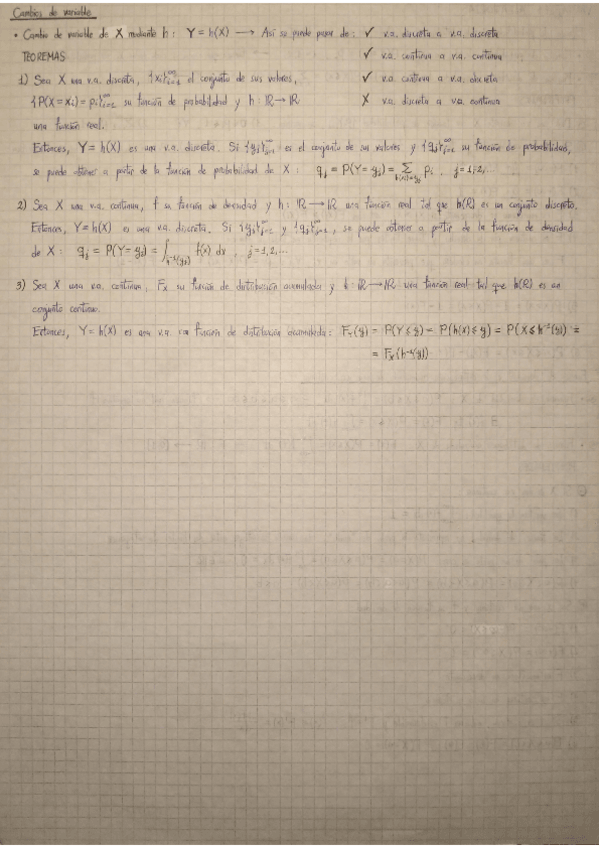 Cambios de variable
• Cambio de variable de X mediante h: Y = h(X) → Así se puede pasar de: ✓ v.a. discreta a v.a. discreta
TEOREMAS ✓ v.a. continua a v.a. continua
1) Sea X una v.a. discreta, {xi}∞i=1 el conjunto de sus valores, ✓ v.a. continua a v.a. discreta
{P(X=xi) = pi}∞i=1 su función de probabilidad y h: ℝ→ℝ X v.a. discreta a v.a. continua
una función real.
Entonces, Y = h(X) es una v.a. discreta. Si {yj}∞j=1 es el conjunto de sus valores y {qj}∞j=1 su función de probabilidad,
se puede obtener a partir de la función de probabilidad de X: qj = P(Y = yj) = Σ h(xi)=yj pi, j=1,2,...
2) Sea X una v.a. continua, f su función de densidad y h: ℝ→ℝ una función real tal que h(ℝ) es un conjunto discreto.
Entonces, Y = h(X) es una v.a. discreta. Si {yj}∞j=1 y {qj}∞j=1, se puede obtener a partir de la función de densidad
de X: qj = P(Y = yj) = ∫h⁻¹(yj) f(x) dx, j=1,2,...
3) Sea X una v.a. continua, FX su función de distribución acumulada y h: ℝ→ℝ una función real tal que h(ℝ) es un
conjunto continuo.
Entonces, Y = h(X) es una v.a. con función de distribución acumulada: FY(y) = P(Y ≤ y) = P(h(X) ≤ y) = P(X ≤ h⁻¹(y)) =
= FX(h⁻¹(y))